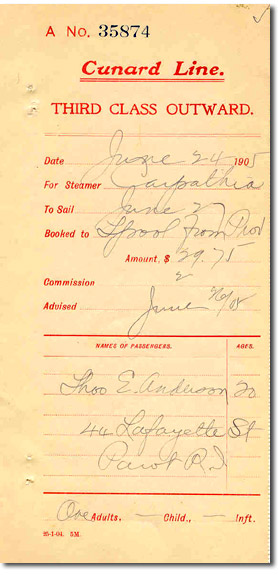 A No. 35874
Cunard Line.
THIRD CLASS OUTWARD.
Date June 24 1905
For Steamer Carpathia
To Sail June 27
Booked to Lpool from Prov
Amount, $ 29.75
Commission 2
Advised June 26/05
NAMES OF PASSENGERS. AGES.
Thos E. Anderson 20
44 Lafayette St
Pawt R.I
One Adults, — Child., — Inft.
25-1-04. 5M.